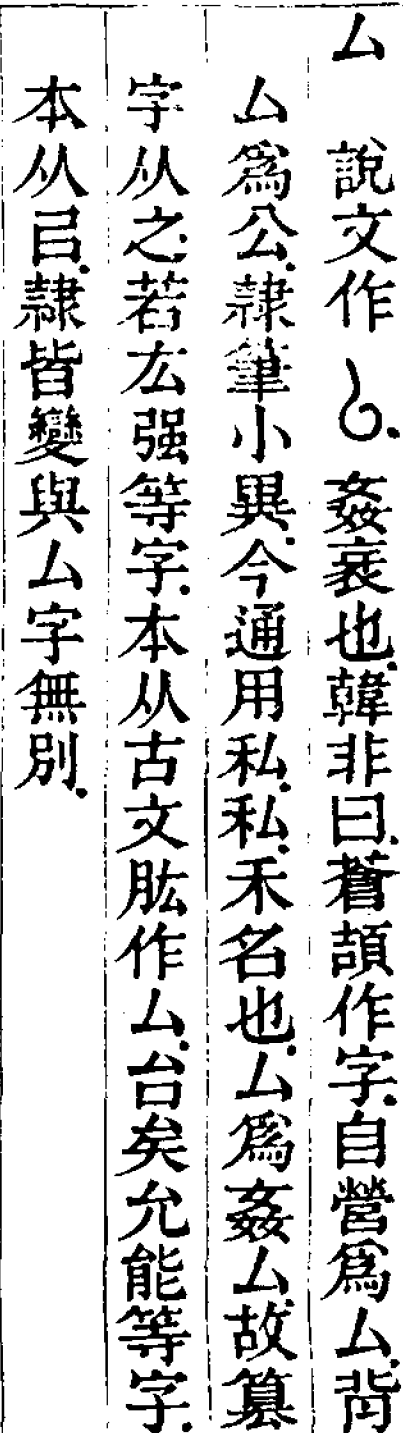 厶 說文作𠫔姦衺也韓非曰蒼頡作字自營爲厶背
厶爲公隷筆小異今通用私私禾名也厶爲姦厶故篡
字从之若厷强等字本从古文肱作厶台矣允能等字
本从㠯隷皆變與厶字無別